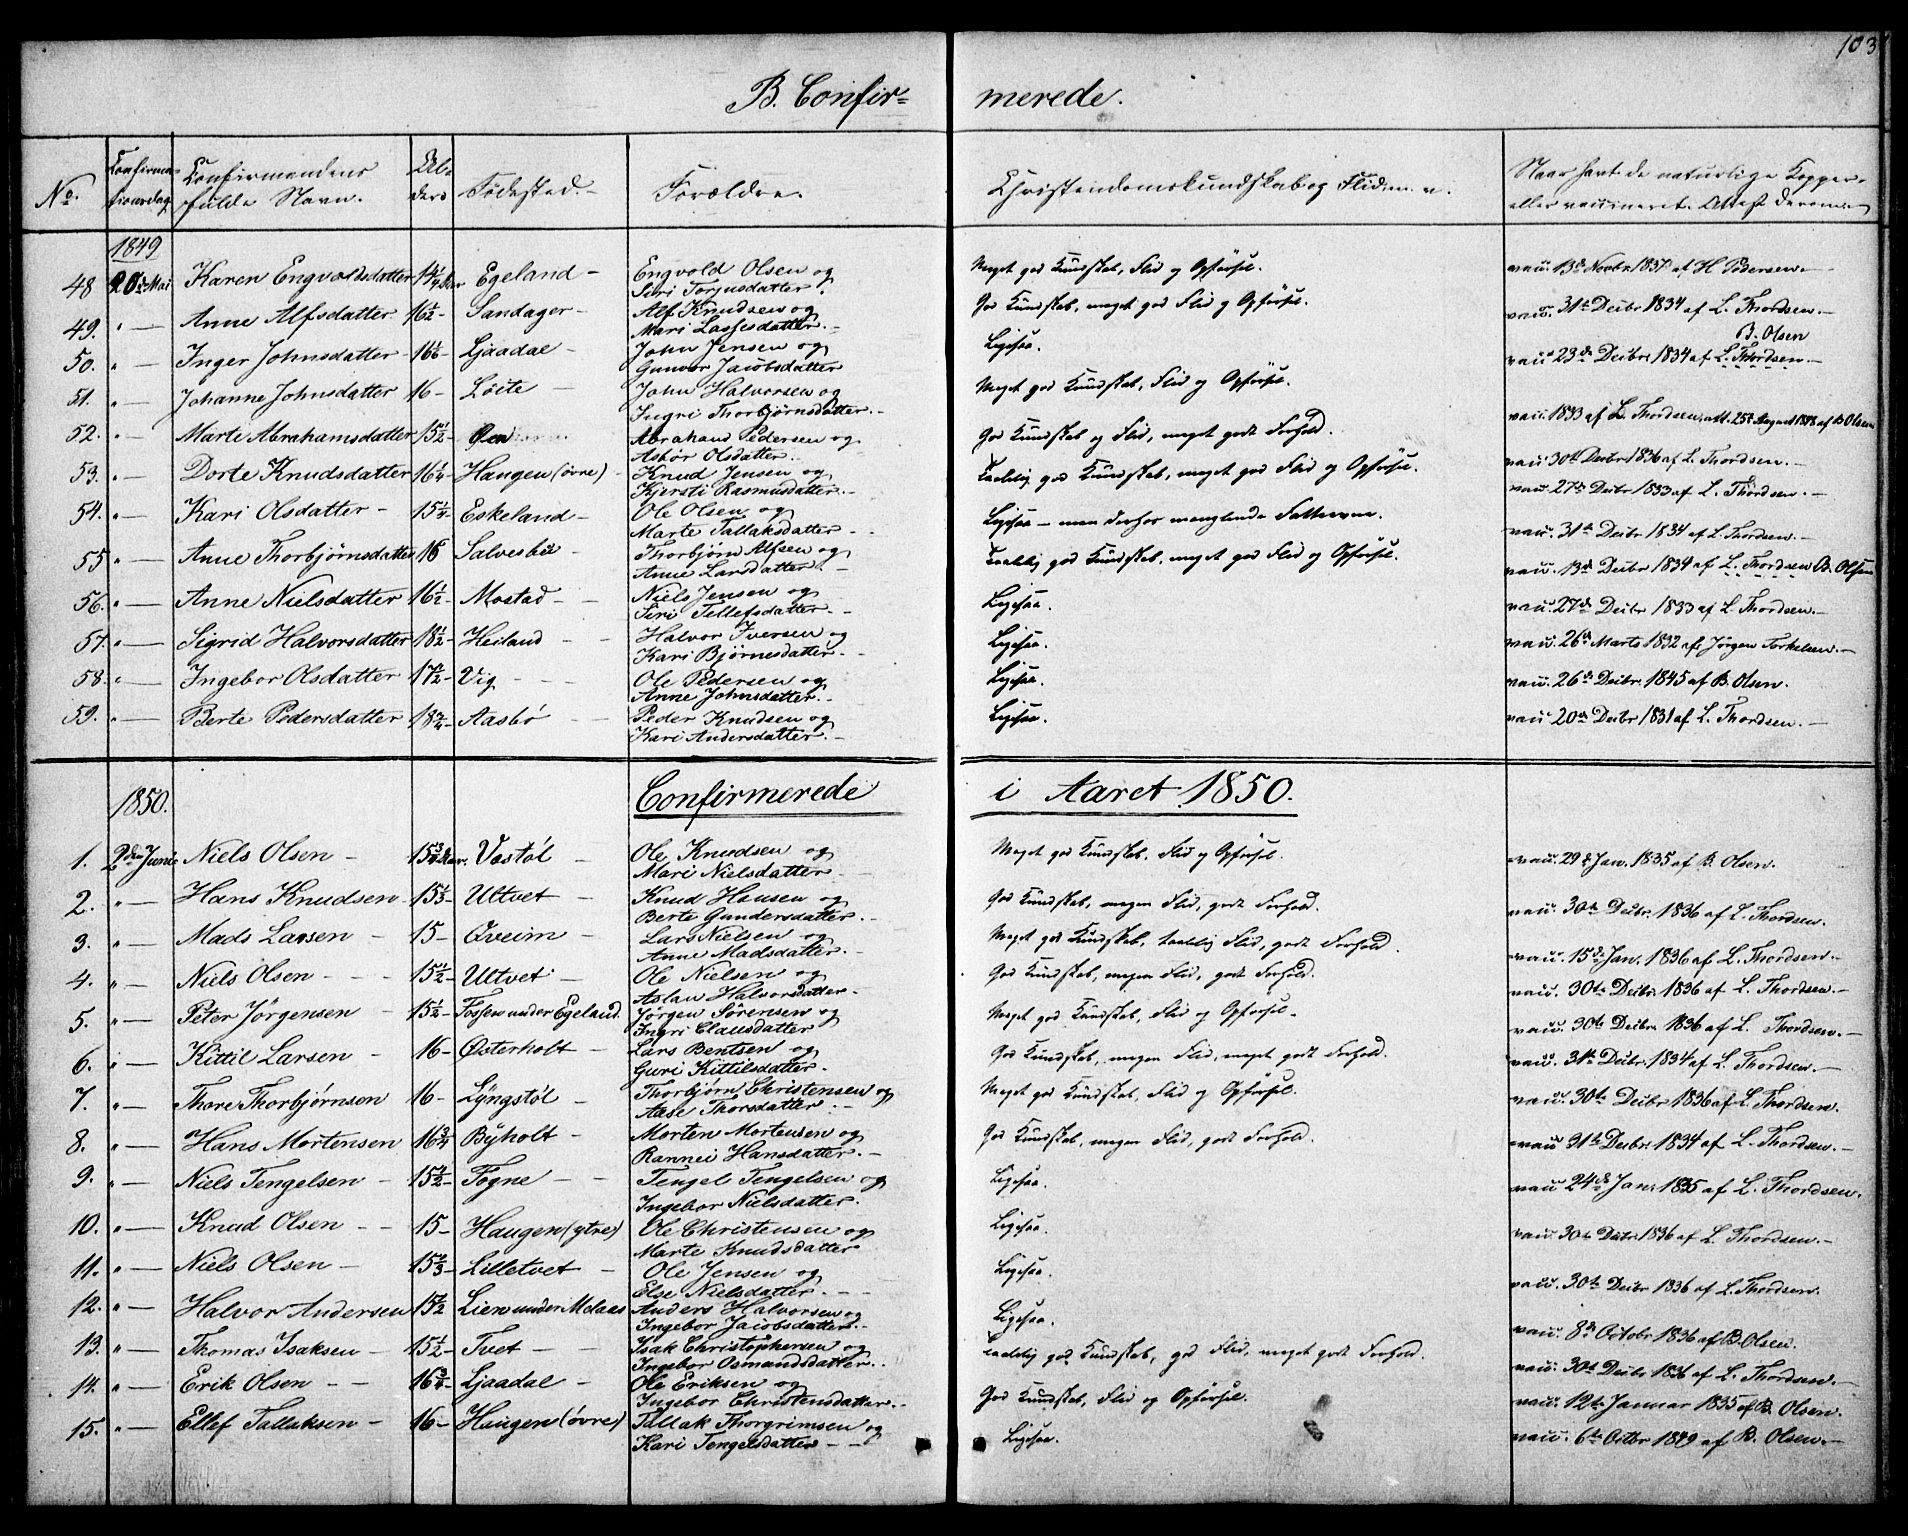 103
B. Confirmerede.
No. Confirmationsdag Confirmandens fulde Navn. Alders Födested. Forældre. Christendomskundskab og Flid m. v. Naar havt de naturlige Kopper eller vaccineret. Attest derom
1849
48 20de Mai Karen Engvoldsdatter 14 1/4 Aar Egeland - Engvold Olsen og Siri Torjusdatter. Meget god Kundskab, Flid og Opførsel. vacc. 13de Novbr 1837 af H Pedersen. -
49. " Anne Alfsdatter 16 1/2 - Sandager - Alf Knudsen og Mari Lassesdatter. - God Kundskab, meget god Flid og Opførsel. vacc. 31te Decbr 1834 af L. Thordsen. -
50. " Inger Johnsdatter - Ljaadal - John Jensen og Gunvor Jacobsdatter Ligesaa. vacc 23de Decbr 1834 af L. Thordsen. - B. Olsen
51. " Johanne Johnsdatter 16 - Löite - John Halvorsen og Ingri Thorbjørnsdatter. - Meget god Kundskab, Flid og Opførsel. vacc. 1833 af L. Thordsen, att. 25de August 1848 af B Olsen
52. " Marte Abrahamsdatter 15 1/2 - Abraham Pedersen og Asbør Olsdatter. - God Kundskab og Flid, meget godt Forhold. vacc 30te Decbr 1836 af L. Thordsen. -
53. " Dorte Knudsdatter 16 1/4 - Haugen (övre) - Knud Jensen og Kjersti Rasmusdatter. - Taalelig god Kundskab, meget god Flid og Opførsel. vacc. 27de Decbr 1833 af L. Thordsen. -
54. " Kari Olsdatter - 15 1/4 - Eskeland - Ole Olsen og Marte Tallaksdatter. - Ligesaa - men derhos manglende Fatteevne. vacc. 31te Decbr 1834 af L. Thordsen. -
55 " Anne Thorbjørnsdatter 16 Salvesbu - Thorbjørn Alfsen og Anne Larsdatter. - Taalelig god Kundskab, meget god Flid og Opførsel. vacc. 13de Decbr 1834 af L. Thordsen B. Olsen
56. " Anne Nielsdatter 16 1/2 - Mostad - Niels Jensen og Siri Tellefsdatter. - Ligesaa. vacc 27de Decbr 1833 af L. Thordsen. -
57. " Sigrid Halvorsdatter 18 1/2 - Heiland - Halvor Iversen og Kari Bjørnesdatter. - Ligesaa. vacc. 26de Marts 1832 af Jørgen Torkelsen. -
58. " Ingebor Olsdatter 17 1/2 - Vig - Ole Pedersen og Anne Johnsdatter. - Ligesaa. vacc. 26de Decbr. 1845 af B. Olsen.
59. " Berte Pedersdatter Aasbø - Peder Knudsen og Kari Andersdatter. - Ligesaa. vacc 20de Decbr 1831 af L. Thordsen. -
1850. Confirmerede i Aaret 1850.
1. 2den Juni Niels Olsen - Vestöl - Ole Knudsen og Mari Nielsdatter. - Meget god Kundskab, Flid og Opførsel. vacc. 29de Jan. 1835 af B. Olsen.
2. " Hans Knudsen - 15 1/3 - Ultvet - Knud Hansen og Berte Gundersdatter. - God Kundskab, megen Flid, godt Forhold. vacc. 30te Decbr. 1836 af L. Thordsen.
3. " Mads Larsen - 15 - Øveim - Lars Nielsen og Anne Madsdatter. - Meget god Kundskab, taalelig Flid, godt Forhold. vacc. 15de Jan. 1836 af L. Thordsen. -
4. " Niels Olsen - 15 1/2 - Ultvet - Ole Nielsen og Aslau Halvorsdatter. - God Kundskab, megen Flid, godt Forhold. vacc. 30te Decbr 1836 af L. Thordsen. -
5. " Peter Jørgensen - 15 1/2 - Fossen under Egeland. Jørgen Sørensen og Ingri Clausdatter Meget god Kundskab, Flid og Opførsel. vacc. 30te Decbr. 1836 af L. Thordsen. -
6. " Kittil Larsen - 16 - Østerholt - Lars Bentsen og Guri Kittilsdatter. God Kundskab, megen Flid, meget godt Forhold. vacc. 31te Decbr. 1834 af L. Thordsen. -
7. " Thore Thorbjørnsen 16 - Lyngstöl - Thorbjørn Christensen og Aase Thorsdatter. - Meget god Kundskab, Flid og Opførsel. vacc. 30te Decbr 1836 af L. Thordsen.
8. " Hans Mortensen 16 3/4 Byholt - Morten Mortensen og Rannei Hansdatter. - God Kundskab, megen Flid, godt Forhold. vacc 31te Decbr. 1834 af L. Thordsen. -
9. " Niels Tengelsen - 15 1/2 - Fogne - Tengel Tengelsen og Ingebor Nielsdatter. Ligesaa. vacc 24de Jan. 1835 af L. Thordsen.
10. " Knud Olsen - 15 - Haugen (ytre) Ole Christensen og Marte Knudsdatter Ligesaa. vacc. 30te Decbr. 1836 af L. Thordsen. -
11. " Niels Olsen - Lilletvet - Ole Jensen og Else Nielsdatter. - Ligesaa. vacc. 30te Decbr 1836 af L. Thordsen.
12. " Halvor Andersen Lien under Melaas Anders Halvorsen og Ingebor Jacobsdatter. - Ligesaa. vacc. 8de Octobr 1836 af B. Olsen.
13. " Thomas Isaksen - 15 1/2 - Tvet - Isak Christophersen og Ingebor Osmundsdatter. Taalelig god Kundskab, god Flid, meget godt Forhold. vacc. 30te Decbr 1836 af L. Thordsen. -
14. " Erik Olsen - 16 3/4 - Ljaadal - Ole Eriksen og Ingebor Christensdatter. God Kundskab, Flid og Opførsel. vacc. 12te Januar 1835 af B. Olsen.
15. " Ellef Tallaksen - 16 - Haugen (övre) Tallak Thorgrimsen og Kari Tengelsdatter - Ligesaa. vacc. 6te Octbr 1849 af B. Olsen. -